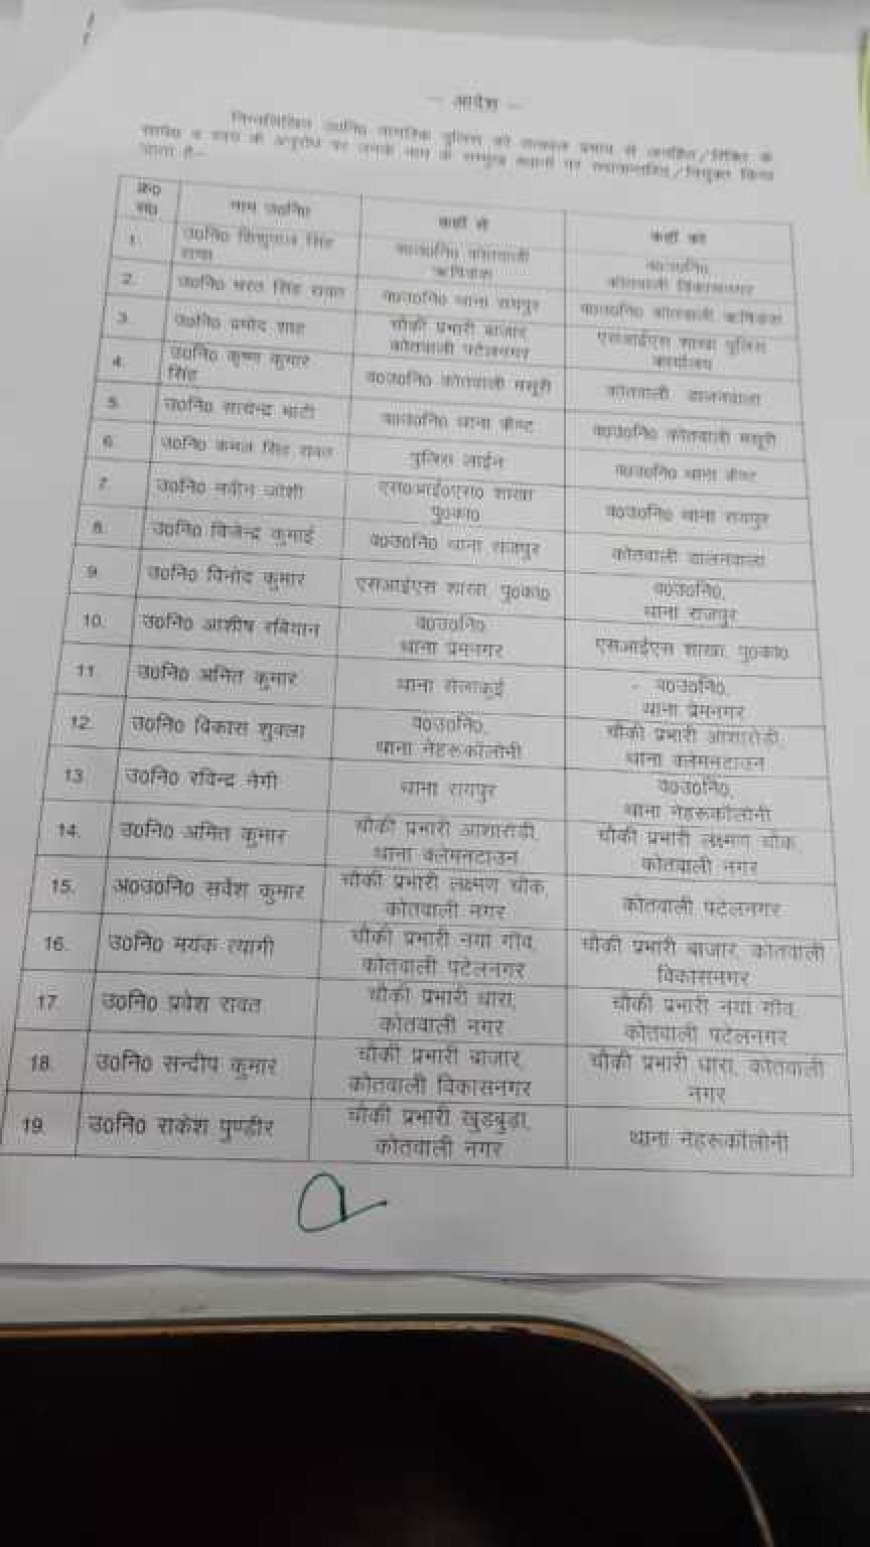 – आदेश –
निम्नलिखित उ0नि0 नागरिक पुलिस को तत्काल प्रभाव से जनहित/रिक्ति के
सापेक्ष व स्वयं के अनुरोध पर उनके नाम के सम्मुख स्थानों पर स्थानान्तरित/नियुक्त किया
जाता है:-
क्र0 सं0 नाम उ0नि0 कहाँ से कहाँ को
1. उ0नि0 सिंह राणा व0उ0नि0 कोतवाली ऋषिकेश व0उ0नि0, कोतवाली विकासनगर
2. उ0नि0 भरत सिंह रावत व0उ0नि0 थाना रायपुर व0उ0नि0 कोतवाली ऋषिकेश
3. उ0नि0 प्रमोद शाह चौकी प्रभारी बाजार, कोतवाली पटेलनगर एसआईएस शाखा पुलिस कार्यालय
4. उ0नि0 कृष्ण कुमार सिंह व0उ0नि0 कोतवाली मसूरी कोतवाली डालनवाला
5. उ0नि0 भाटी व0उ0नि0 थाना कैण्ट व0उ0नि0 कोतवाली मसूरी
6. उ0नि0 कमल सिंह रावत पुलिस लाईन व0उ0नि0 थाना कैण्ट
7. उ0नि0 नवीन जोशी एस0आई0एस0 शाखा पु0का0 व0उ0नि0 थाना रायपुर
8. उ0नि0 विजेन्द्र कुमाई व0उ0नि0 थाना राजपुर कोतवाली डालनवाला
9. उ0नि0 विनोद कुमार एसआईएस शाखा, पु0का0 व0उ0नि0, थाना राजपुर
10. उ0नि0 आशीष रबियान व0उ0नि0 थाना प्रेमनगर एसआईएस शाखा, पु0का0
11 उ0नि0 अमित कुमार थाना सेलाकुई - व0उ0नि0, थाना प्रेमनगर
12. उ0नि0 विकास शुक्ला व0उ0नि0, थाना नेहरूकॉलोनी चौकी प्रभारी आशारोड़ी, थाना क्लेमनटाउन
13. उ0नि0 रविन्द्र नेगी थाना रायपुर व0उ0नि0, थाना नेहरूकॉलोनी
14. उ0नि0 अमित कुमार चौकी प्रभारी आशारोड़ी, थाना क्लेमनटाउन चौकी प्रभारी लक्ष्मण चौक, कोतवाली नगर
15. अ0उ0नि0 सर्वेश कुमार चौकी प्रभारी लक्ष्मण चौक, कोतवाली नगर कोतवाली पटेलनगर
16. उ0नि0 मयंक त्यागी चौकी प्रभारी नया गाँव, कोतवाली पटेलनगर चौकी प्रभारी बाजार, कोतवाली विकासनगर
17. उ0नि0 प्रवेश रावत चौकी प्रभारी धारा, कोतवाली नगर चौकी प्रभारी नया गाँव, कोतवाली पटेलनगर
18. उ0नि0 सन्दीप कुमार चौकी प्रभारी बाजार, कोतवाली विकासनगर चौकी प्रभारी धारा, कोतवाली नगर
19. उ0नि0 राकेश पुण्डीर चौकी प्रभारी खुड़बुड़ा, कोतवाली नगर थाना नेहरूकॉलोनी